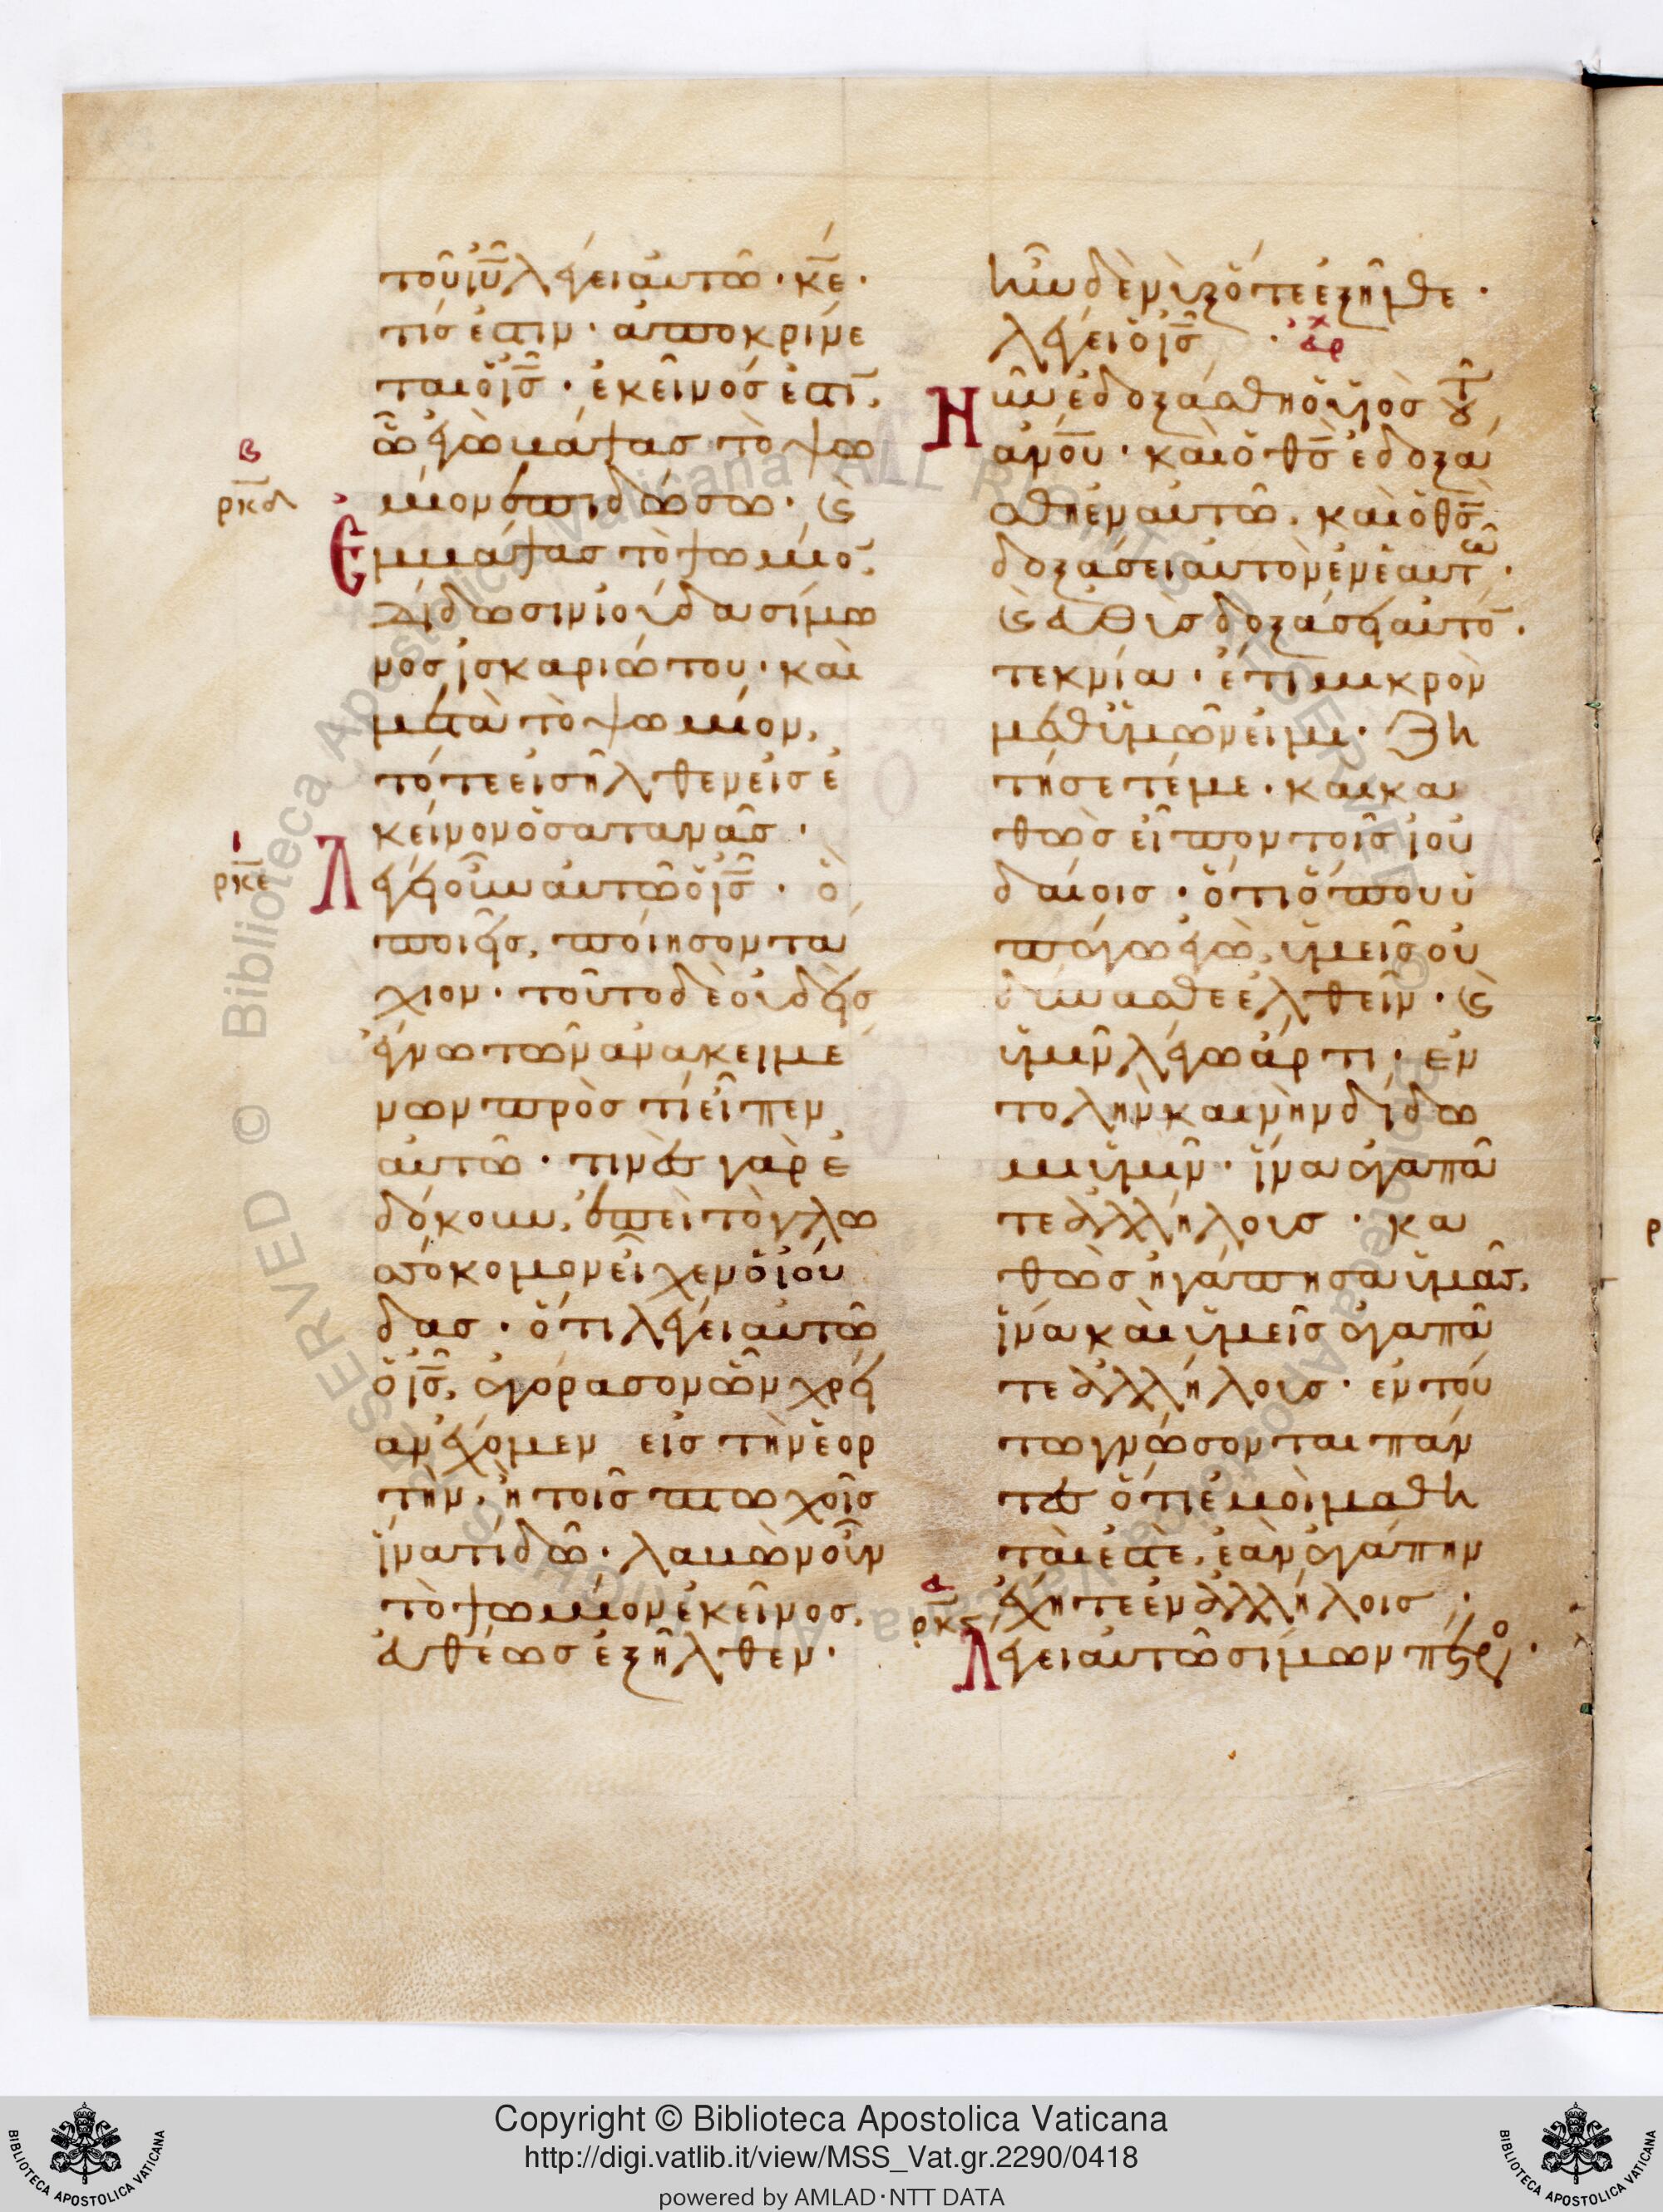 τοῦ ἰῦ λέγει αὐτῶ · κε̄ ·
τίς ἐστιν · ἀποκρίνε
ται ὁ ἰς̄ · ἐκεῖνός ἐστῑ,
ὧ ἐγὼ βάψας τὸ ψω
μίον ἐπιδώσω · κ(αὶ)
β
ρκδ
Ἐμβάψας τὸ ψωμίο̄,
δίδωσιν ἰούδα σίμω
νος ἰσκαριώτου · καὶ
μετὰ τὸ ψωμίον,
τότε εἰσῆλθεν εἰς ἐ
κεῖνον ὁ σατανᾶς ·
ι
ρκε
Λέγει οὖν αὐτῶ ὁ ἰς̄ · ὃ
ποιεῖς, ποίησον τά
χιον · τοῦτο δὲ οὐδεὶς
ἔγνω τῶν ἀνακειμέ
νων πρὸς τί εἶπεν
αὐτῶ · τινὲς γὰρ ἐ
δόκουν, ἐπεὶ τὸ γλω
σόκομον εἶχεν ὁ ἰού
δας · ὅτι λέγει αὐτῶ
ὁ ἰς̄, ἀγόρασον ὧν χρεί
αν ἔχομεν εἰς τὴν ἑορ
τὴν, ἢ τοῖς πτωχοῖς
ἵνα τί δῶ · λαβὼν οὖν
τὸ ψωμίον ἐκεῖνος,
εὐθέως ἐξῆλθεν ·
ἦν δὲ νὺξ ὅτε ἐξῆλθε ·
λέγει ὁ ἰς̄ · ἀρχ
Νῦν ἐδοξάσθη ὁ υἱὸς τοῦ
ἀνο̄υ · καὶ ὁ θς̄ ἐδοξά
σθη ἐν αὐτῶ, καὶ ὁ θς̄
δοξάσει αὐτὸν ἐν ἑαυτῶ ·
κ(αὶ) εὐθὺς δοξάσει αὐτό̄ ·
τεκνία · ἔτι μικρὸν
μεθ ὑμῶν εἰμι · ζη
τήσετέ με · καὶ κα
θὼς εἶπον τοῖς ἰου
δαίοις · ὅτι ὅπου ὑ
πάγω ἐγὼ, ὑμεῖς οὐ
δύνασθε ἐλθεῖν · κ(αὶ)
ὑμῖν λέγω ἄρτι · ἐν
τολὴν καινὴν δίδω
μι ὑμῖν · ἵνα ἀγαπᾶ
τε ἀλλήλους · κα
θὼς ἠγάπησα ὑμᾶς,
ἵνα καὶ ὑμεῖς ἀγαπᾶ
τε ἀλλήλους · ἐν τού
τω γνώσονται πάν
τες ὅτι ἐμοὶ μαθη
ταὶ ἐστὲ, ἐὰν ἀγάπην
ἔχητε ἐν ἀλλήλοις ·
α
ρκς
Λέγει αὐτῶ σίμων πέτρο ·
Copyright © Biblioteca Apostolica Vaticana
http://digi.vatlib.it/view/MSS_Vat.gr.2290/0418
powered by AMLAD·NTT DATA
BIBLIOTECA APOSTOLICA VATICANA
BIBLIOTECA APOSTOLICA VATICANA
© Biblioteca Apostolica Vaticana ALL RIGHTS RESERVED